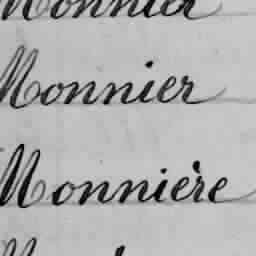 Monnier
Monnier
Monnière